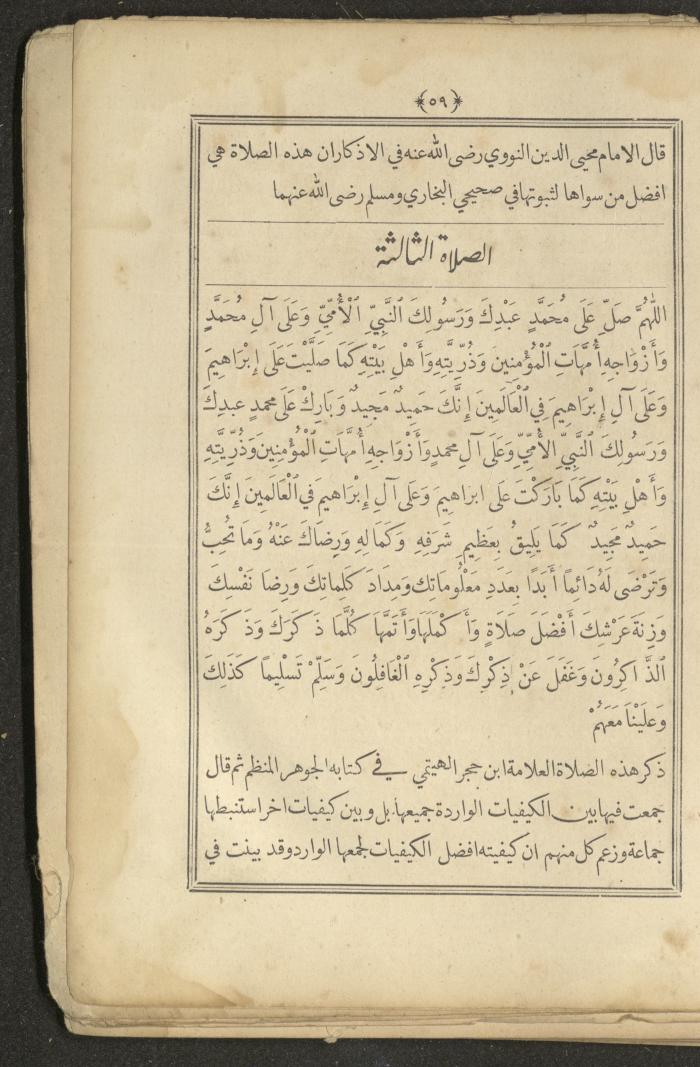 ﴿٥٩﴾
قال الامام محيى الدين النووي رضى الله عنه في الاذكار ان هذه الصلاة هي
افضل من سواها لثبوتها في صحيحي البخاري ومسلم رضى الله عنهما
الصلاة الثالثة
اَللّٰهُمَّ صَلِّ عَلَى مُحَمَّدٍ عَبْدِكَ وَرَسُولِكَ ٱلنَّبِيِّ ٱلْأُمِّيِّ وَعَلَى آلِ مُحَمَّدٍ
وَأَزْوَاجِهِ أُمَّهَاتِ ٱلْمُؤْمِنِينَ وَذُرِّيَّتِهِ وَأَهْلِ بَيْتِهِ كَمَا صَلَّيْتَ عَلَى إِبْرَاهِيمَ
وَعَلَى آلِ إِبْرَاهِيمَ فِي ٱلْعَالَمِينَ إِنَّكَ حَمِيدٌ مَجِيدٌ وَبَارِكْ عَلَى محمدٍ عبدِكَ
وَرَسُولِكَ ٱلنَّبِيِّ ٱلأُمِّيِّ وَعَلَى آلِ محمدٍ وَأَزْوَاجِهِ أُمَّهَاتِ ٱلْمُؤْمِنِينَ وَذُرِّيَّتِهِ
وَأَهْلِ بَيْتِهِ كَمَا بَارَكْتَ عَلَى ابراهيمَ وَعَلَى آلِ إِبْرَاهِيمَ فِي ٱلْعَالَمِينَ إِنَّكَ
حَمِيدٌ مَجِيدٌ كَمَا يَلِيقُ بِعَظِيمِ شَرَفِهِ وَكَمَالِهِ وَرِضَاكَ عَنْهُ وَمَا تُحِبُّ
وَتَرْضَى لَهُ دَائِماً أَبَدًا بِعَدَدِ مَعْلُومَاتِكَ وَمِدَادَ كَلِمَاتِكَ وَرِضَا نَفْسِكَ
وَزِنَةَ عَرْشِكَ أَفْضَلَ صَلاَةٍ وَأَكْمَلَهَا وَأَتَمَّهَا كُلَّمَا ذَكَرَكَ وَذَكَرَهُ
ٱلذَّاكِرُونَ وَغَفَلَ عَنْ ذِكْرِكَ وَذِكْرِهِ ٱلْغَافِلُونَ وَسَلِّمْ تَسْلِيماً كَذَلِكَ
وَعَلَيْنَا مَعَهُمْ
ذكر هذه الصلاة العلامة ابن حجر الهيتمي في كتابه الجوهر المنظم ثم قال
جمعت فيها بين الكيفيات الواردة جميعها بل وبين كيفيات اخر استنبطها
جماعة وزعم كل منهم ان كيفيته افضل الكيفيات لجمعها الوارد وقد بينت في